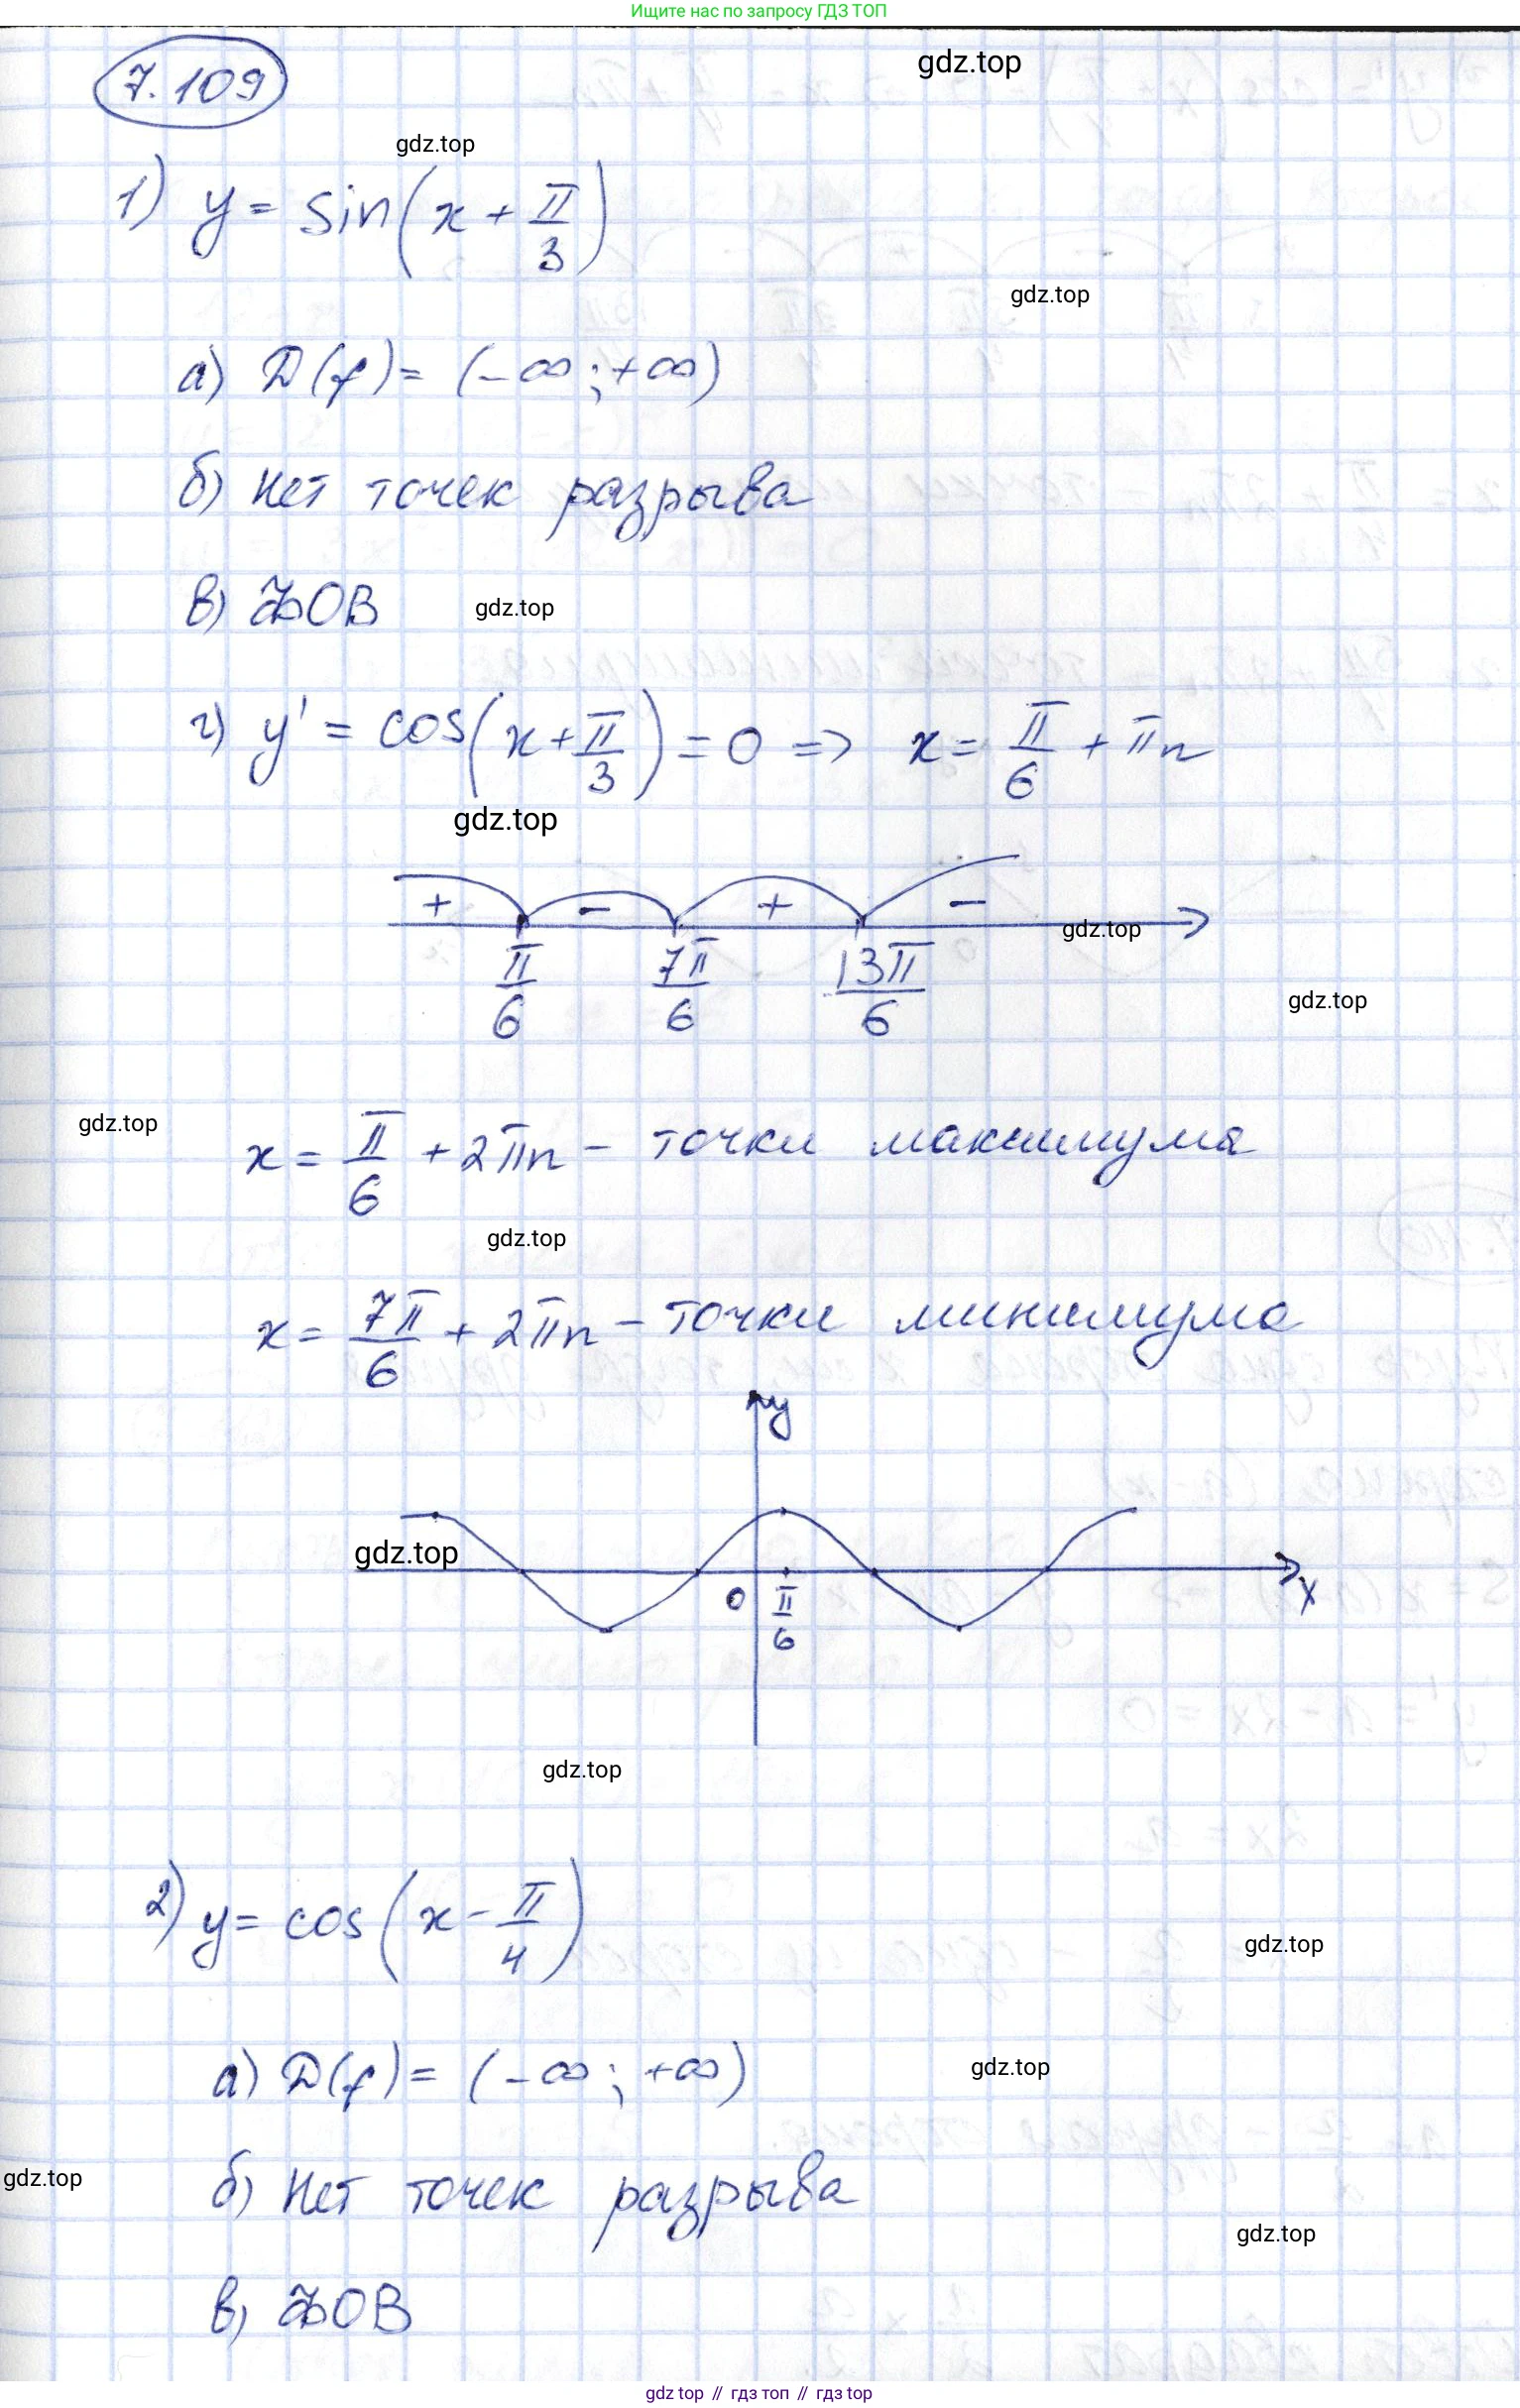 Ищите нас по запросу ГДЗ ТОП
7.109
gdz.top
gdz.top
1) y = sin(x + π/3)
gdz.top
а) D(f) = (-∞; +∞)
б) Нет точек разрыва
в) ФОВ
gdz.top
г) y' = cos(x + π/3) = 0 => x = π/6 + πn
gdz.top
+ - + -
gdz.top
π/6 7π/6 13π/6
gdz.top
gdz.top
x = π/6 + 2πn - точки максимума
gdz.top
x = 7π/6 + 2πn - точки минимума
y
gdz.top
0 π/6 x
gdz.top
2) y = cos(x - π/4)
gdz.top
а) D(f) = (-∞; +∞)
gdz.top
gdz.top
б) Нет точек разрыва
gdz.top
в) ФОВ
gdz.top // гдз топ // гдз top